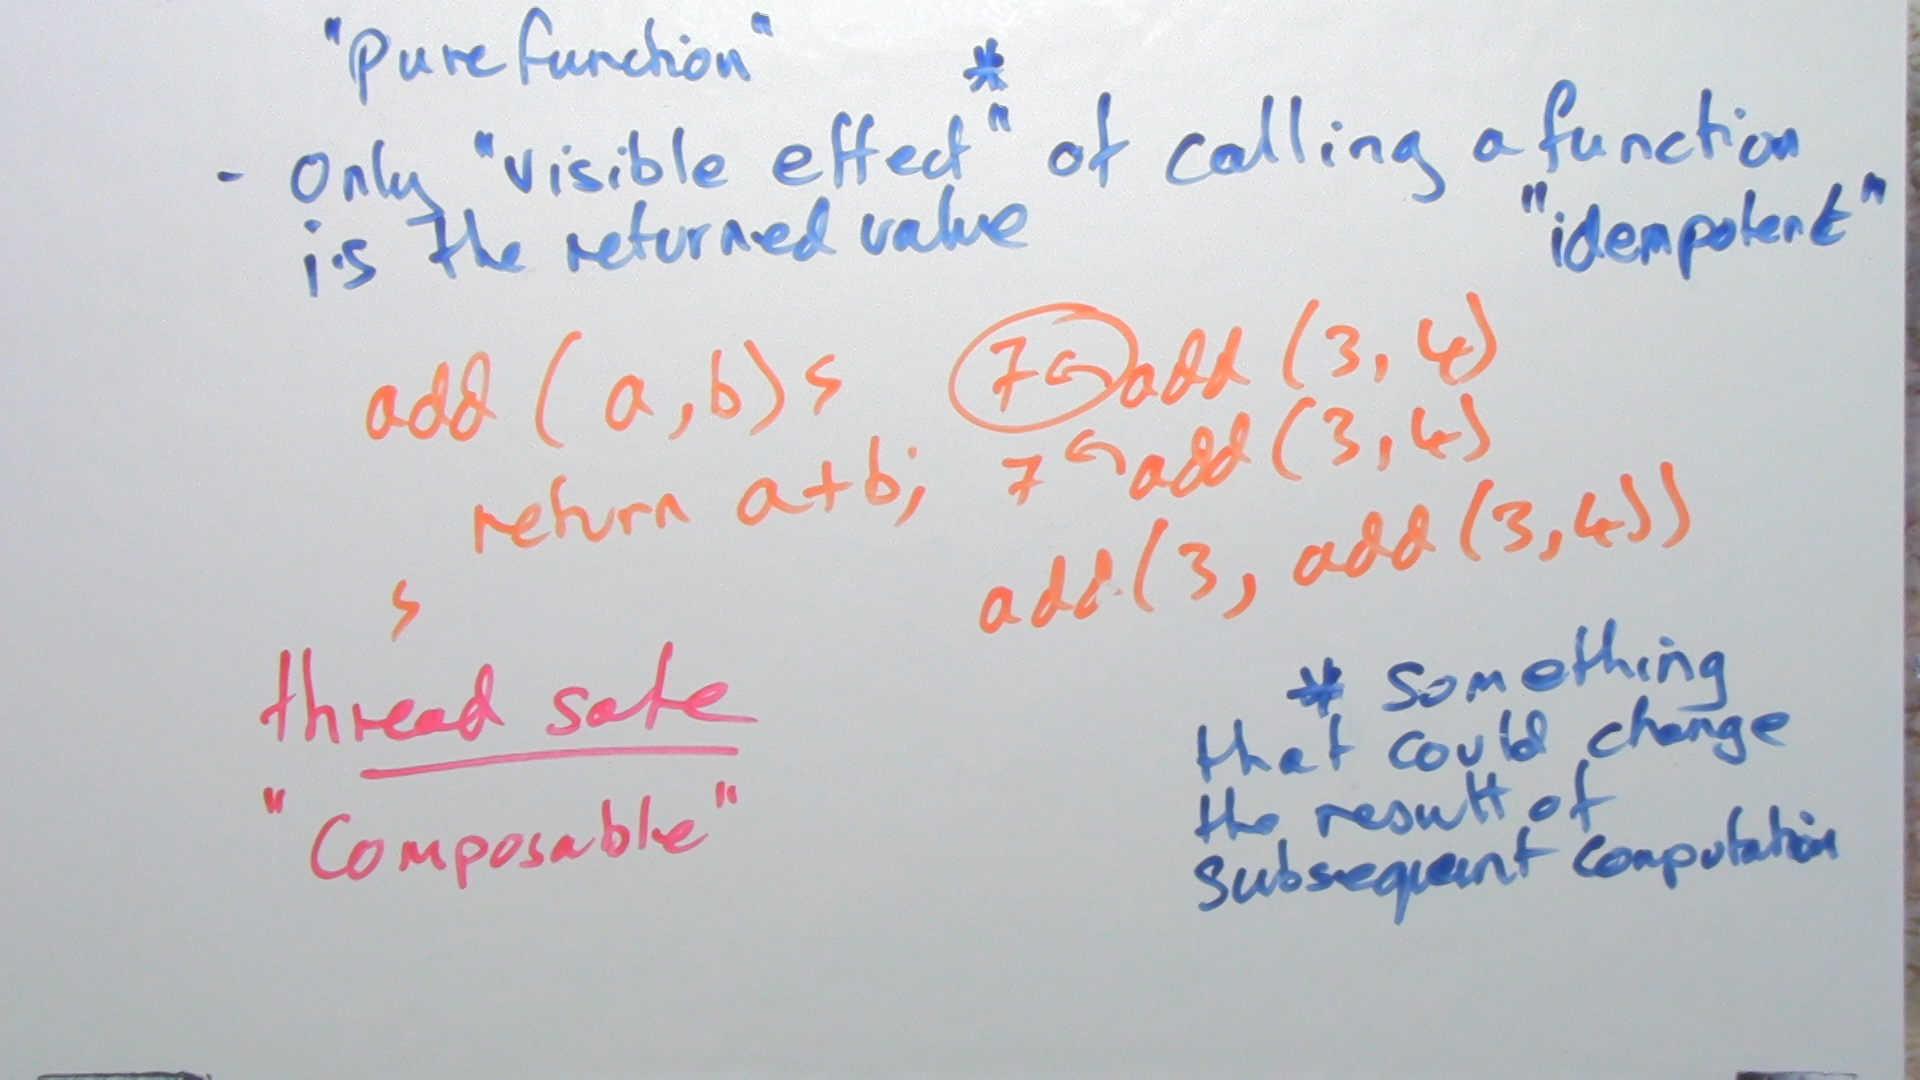 "pure function"
*
- Only "visible effect" of calling a function
is the returned value
"idempotent"
add (a,b) {
return a+b;
}
7 add (3, 4)
7 add (3, 4)
add (3, add (3,4))
thread safe
"Composable"
* Something
that could change
the result of
subsequent computation